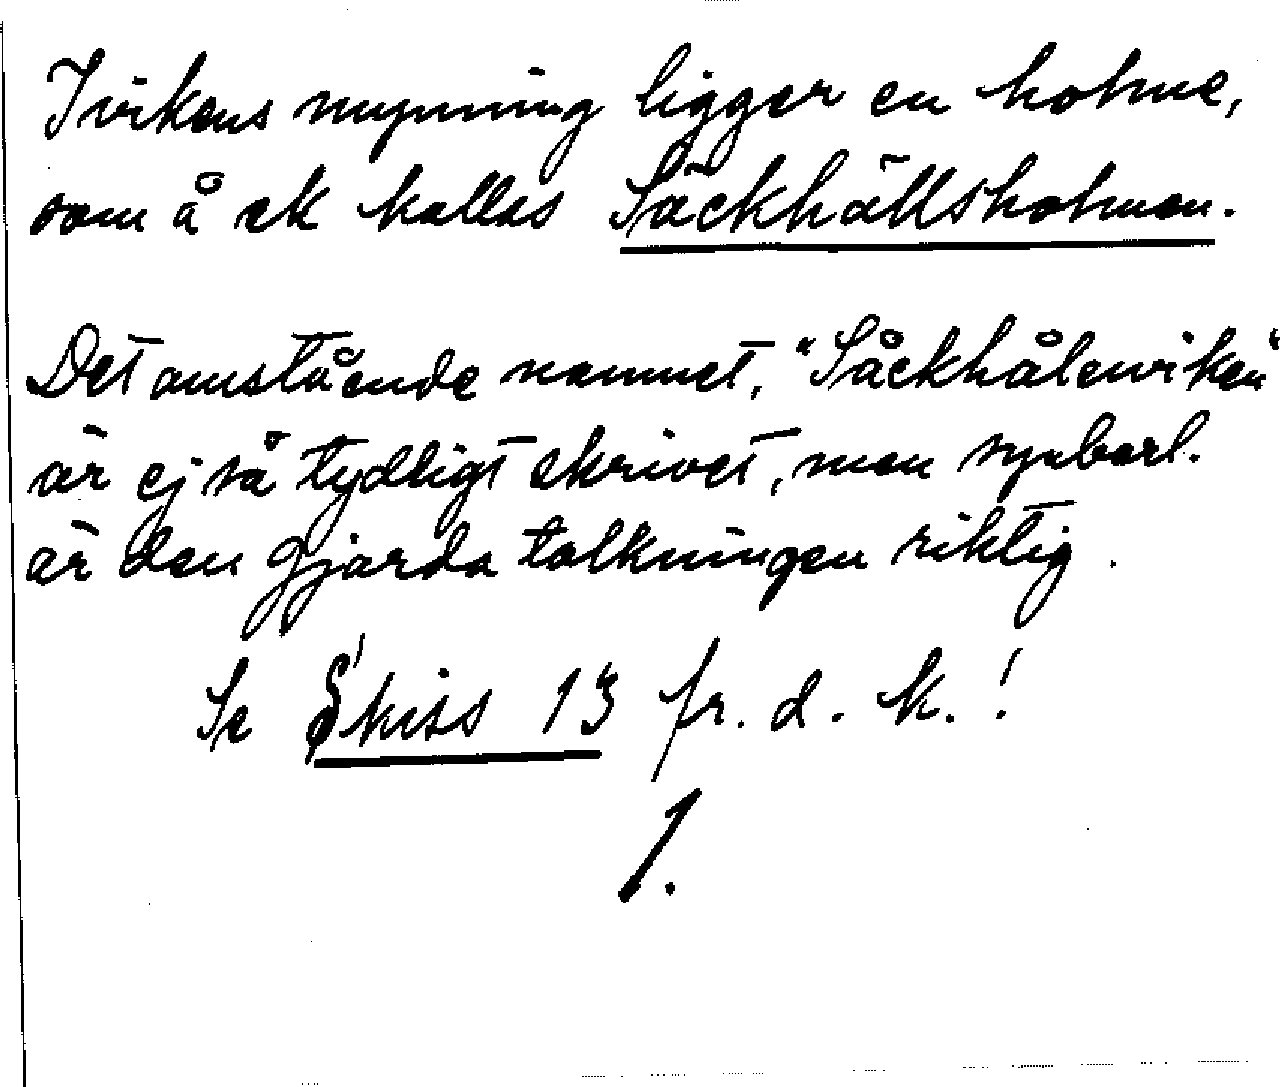 I vikens mynning ligger en holme,
som å ek kallas Säckhällsholmen.
Det omstående namnet, "Såckhålewiken"
är ej så tydligt skrivet, men synbarl.
är den gjorda tolkningen riktig.
Se Skiss 13 fr. d. k.!
1.